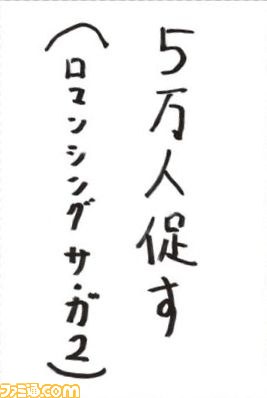 5万人促す
(ロマンシング サ・ガ2)
ファミ通.com